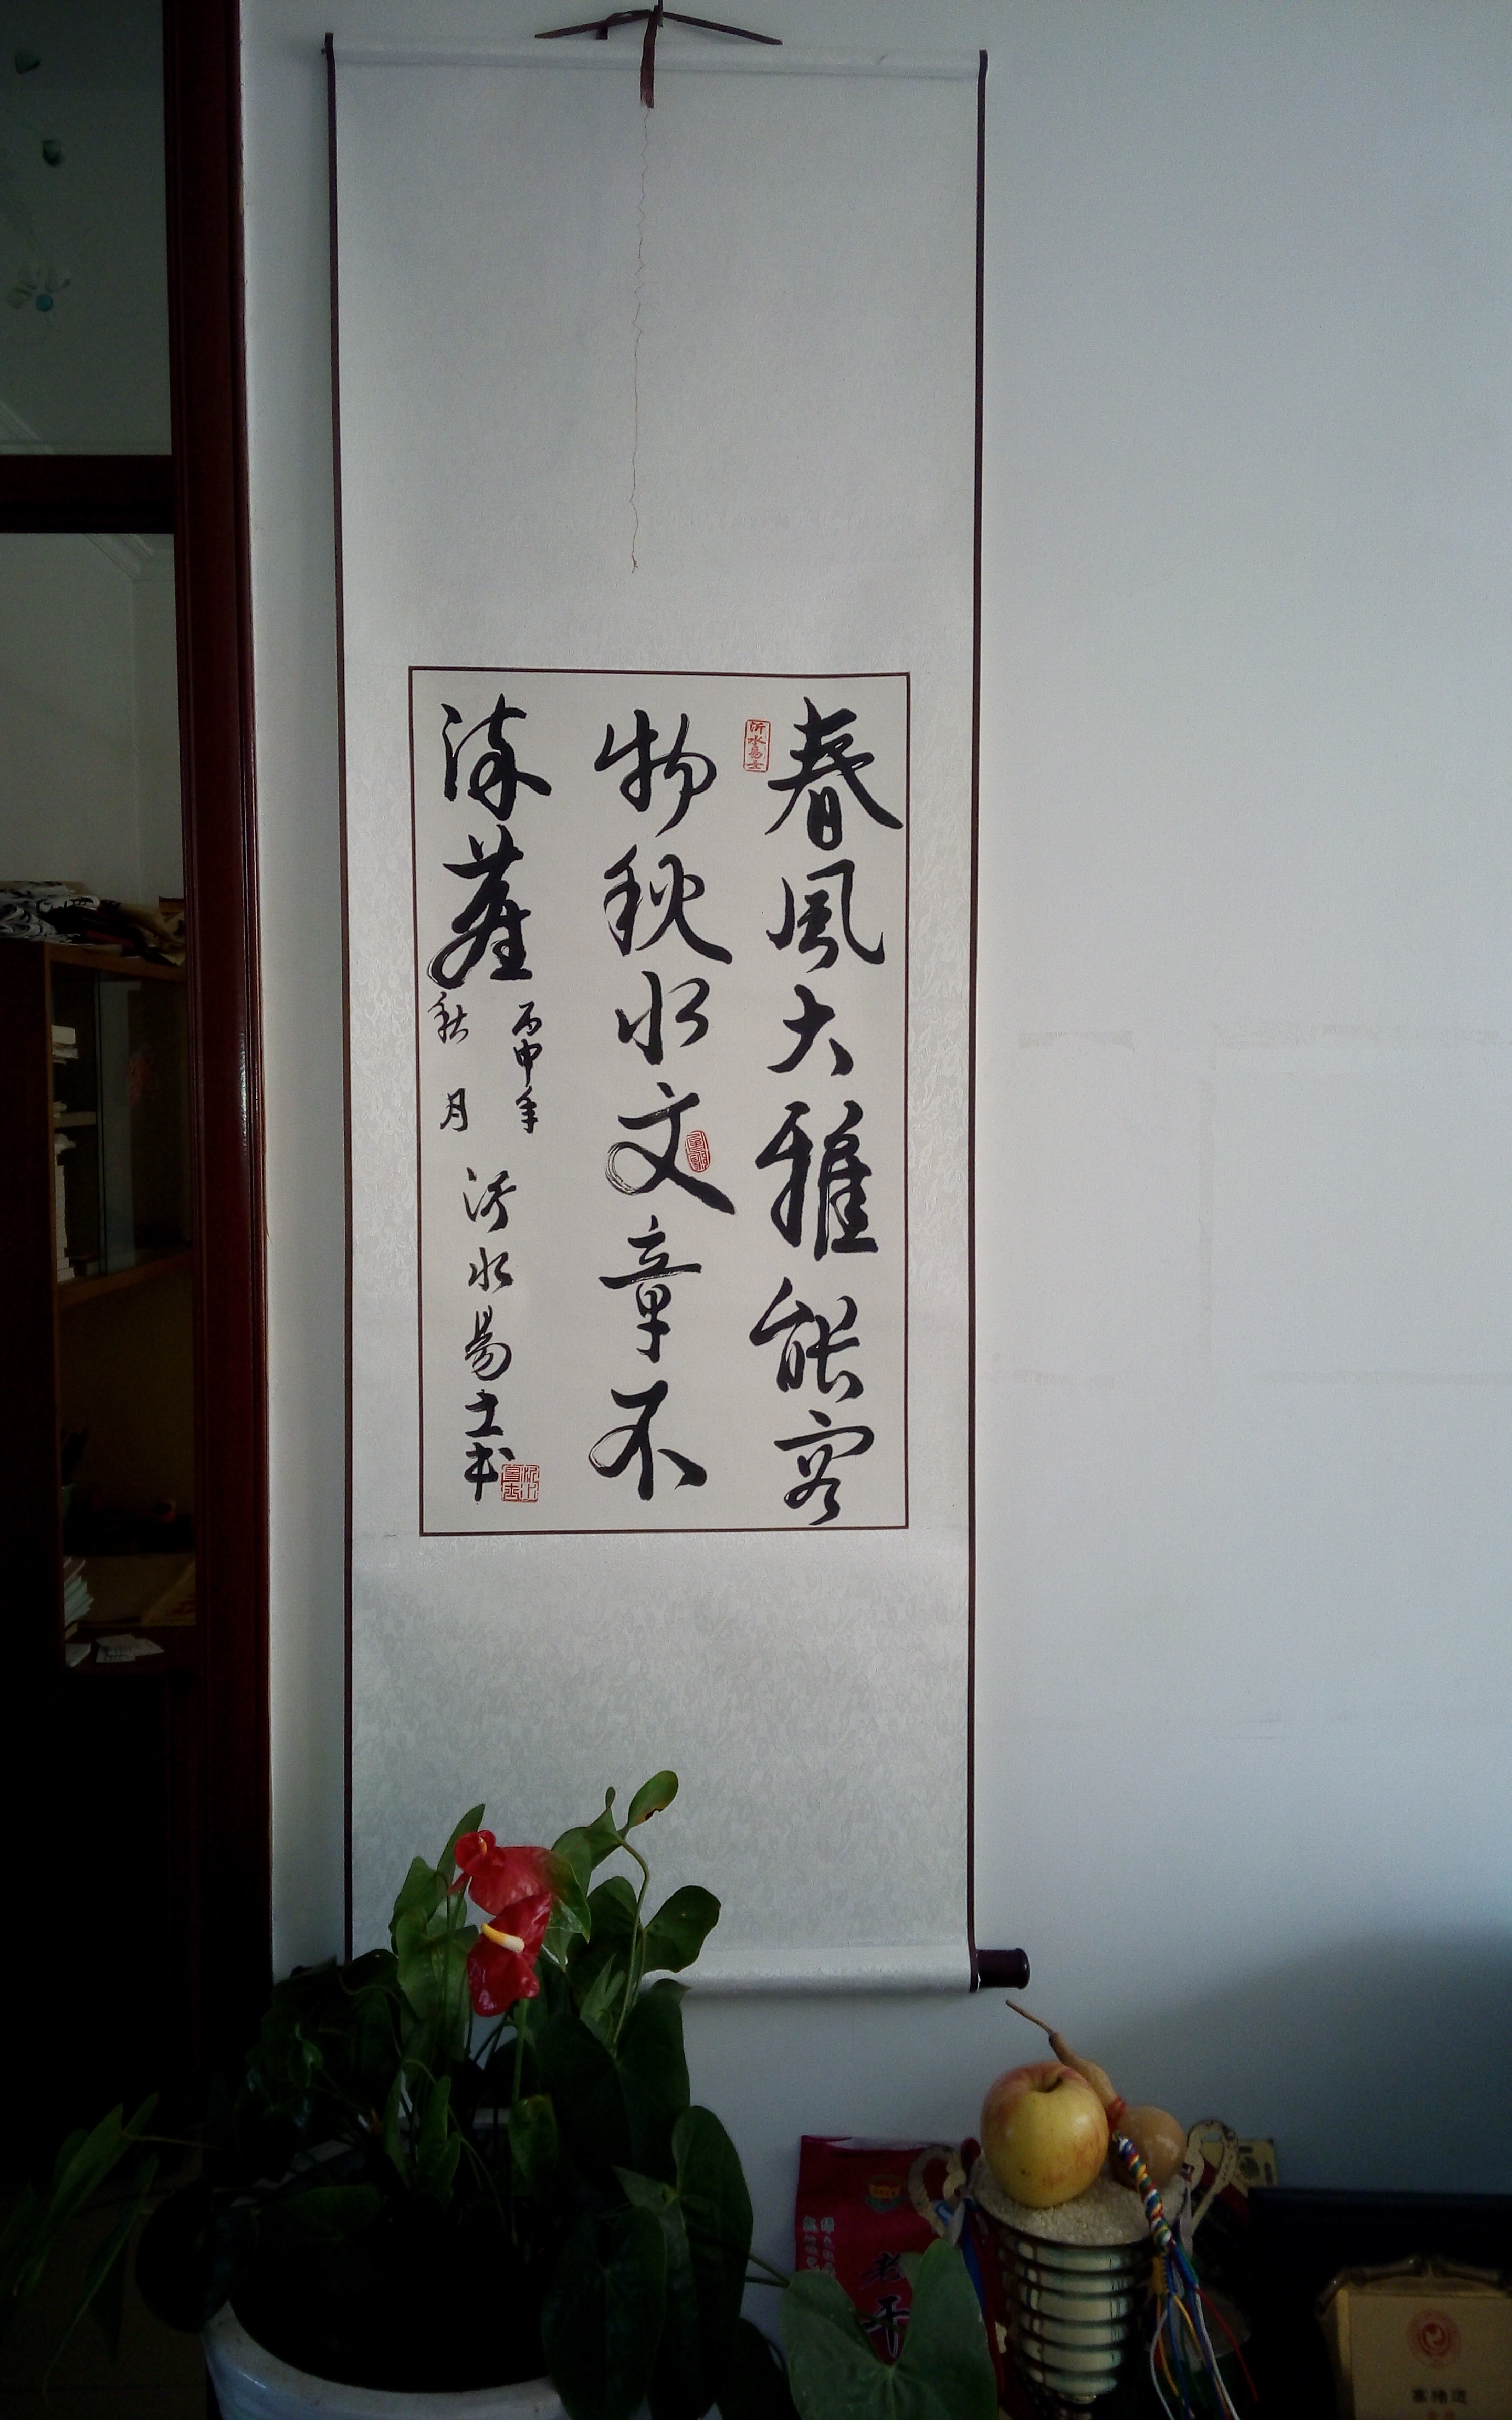 春风大雅能容
物秋水文章不
染尘
丙申年
秋月
沂水易士书
沂水易士
老
干